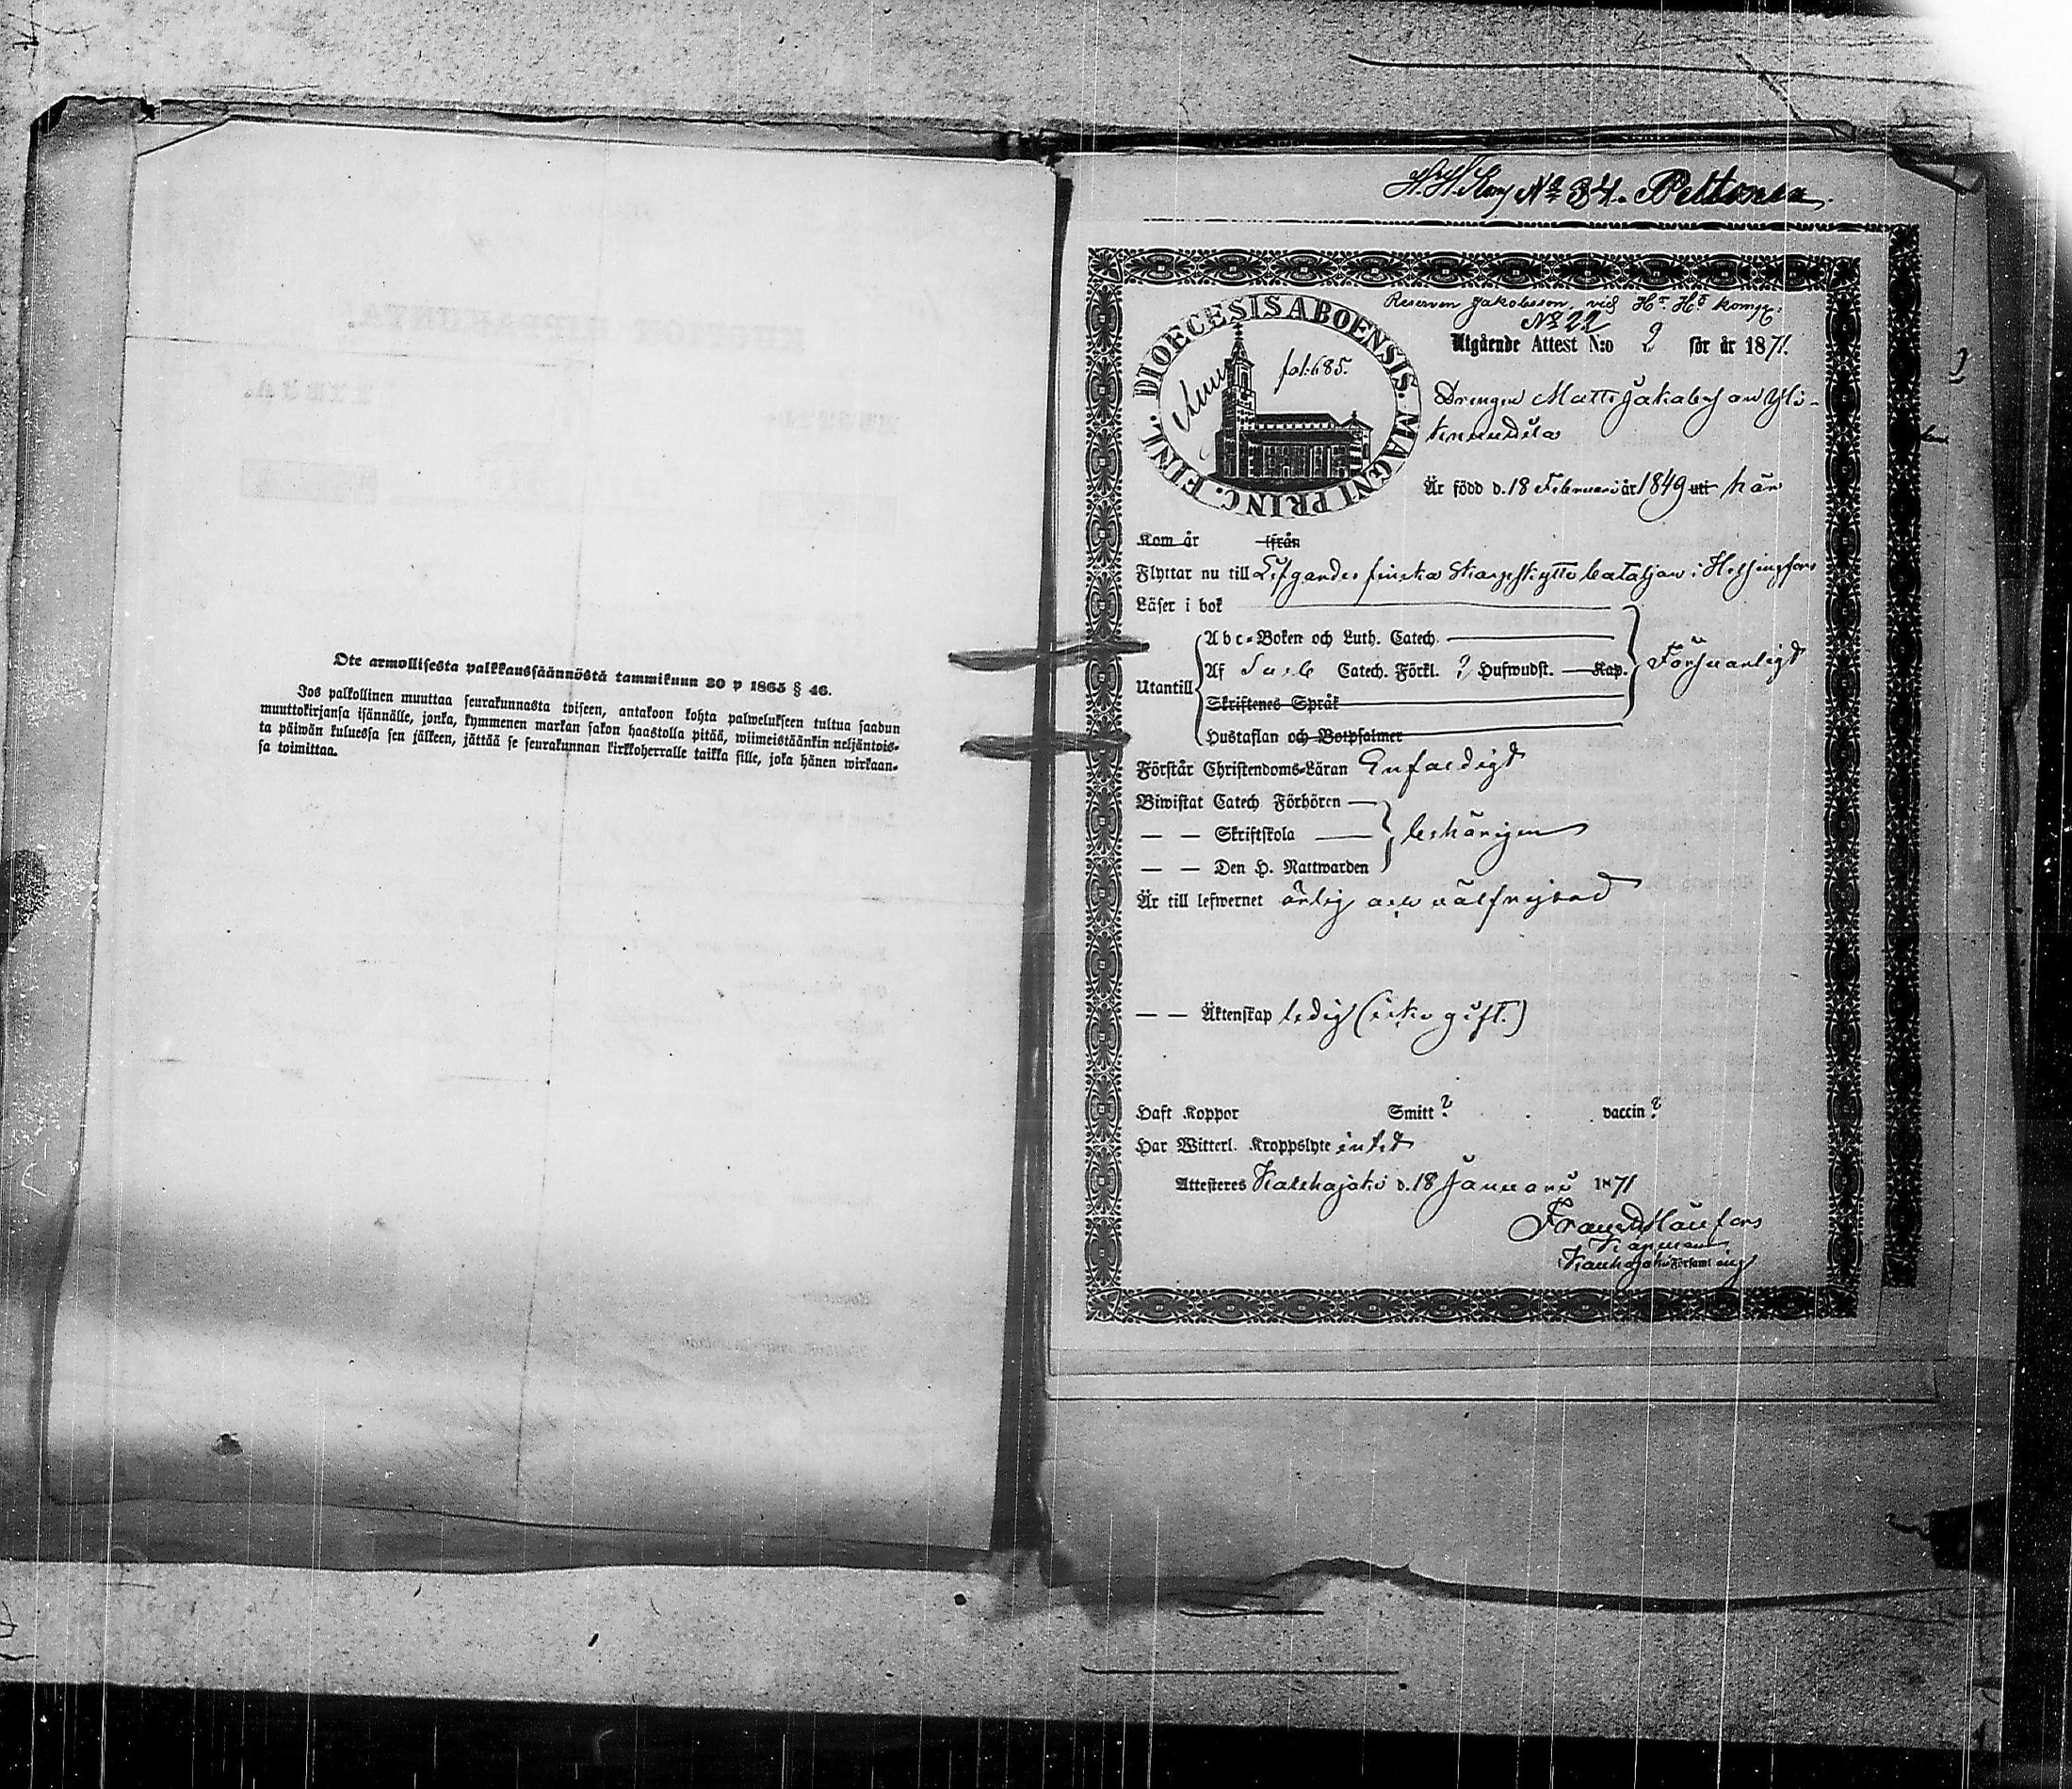 Ote armollisesta palkkaussäännöstä tammikuun 30 p 1865 § 46.
Jos palkollinen muuttaa seurakunnasta toiseen, antakoon kohta palwelukseen tultua saadun
muuttokirjansa isännälle, jonka, kymmenen markan sakon haastolla pitää, wiimeistäänkin neljäntois-
ta päiwän kuluessa sen jälkeen, jättää se seurakunnan kirkkoherralle taikka sille, joka hänen wirkaan-
sa toimittaa.
No 34. Peltonen
Reserven Jakobsson, vid Hr Hs komp:
No 22
DIOECESIS ABOENSIS. MAGNI PRINC. FINL.
fol. 685.
Utgående Attest N:o 2 för år 1871.
Drengen Matts Jakobsson Yli-
Är född d. 18 Februari år 1849 uti här
Kom år ifrån
Flyttar nu till Lifgardes finska Skarpskytte bataljon i Helsingfors
Läser i bok
Utantill
Abc-Boken och Luth. Catech.
Af Catech. Förkl. 2 Hufwudst. Kap.
Skriftenes Språk
Hustaflan och Botpsalmer
Försvarligt
Förstår Christendoms-Läran Enfaldigt
Biwistat Catech. Förhören
— — Skriftskola
— — Den H. Nattwarden
behörigen
Är till lefwernet ärlig och välfrejdad
— — Äktenskap ledig (icke gift.)
Haft Koppor Smitt? vaccin?
Har Witterl. Kroppslyte intet
Attesteres Kalajoki d. 18 Januari 1871
Församling